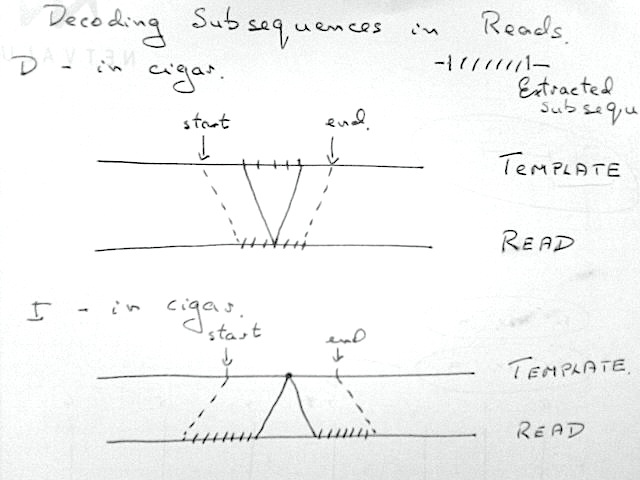 Decoding Subsequences in Reads.
D - in cigar.
Extracted
subsequ
start end.
TEMPLATE
READ
I - in cigar.
start end
TEMPLATE.
READ